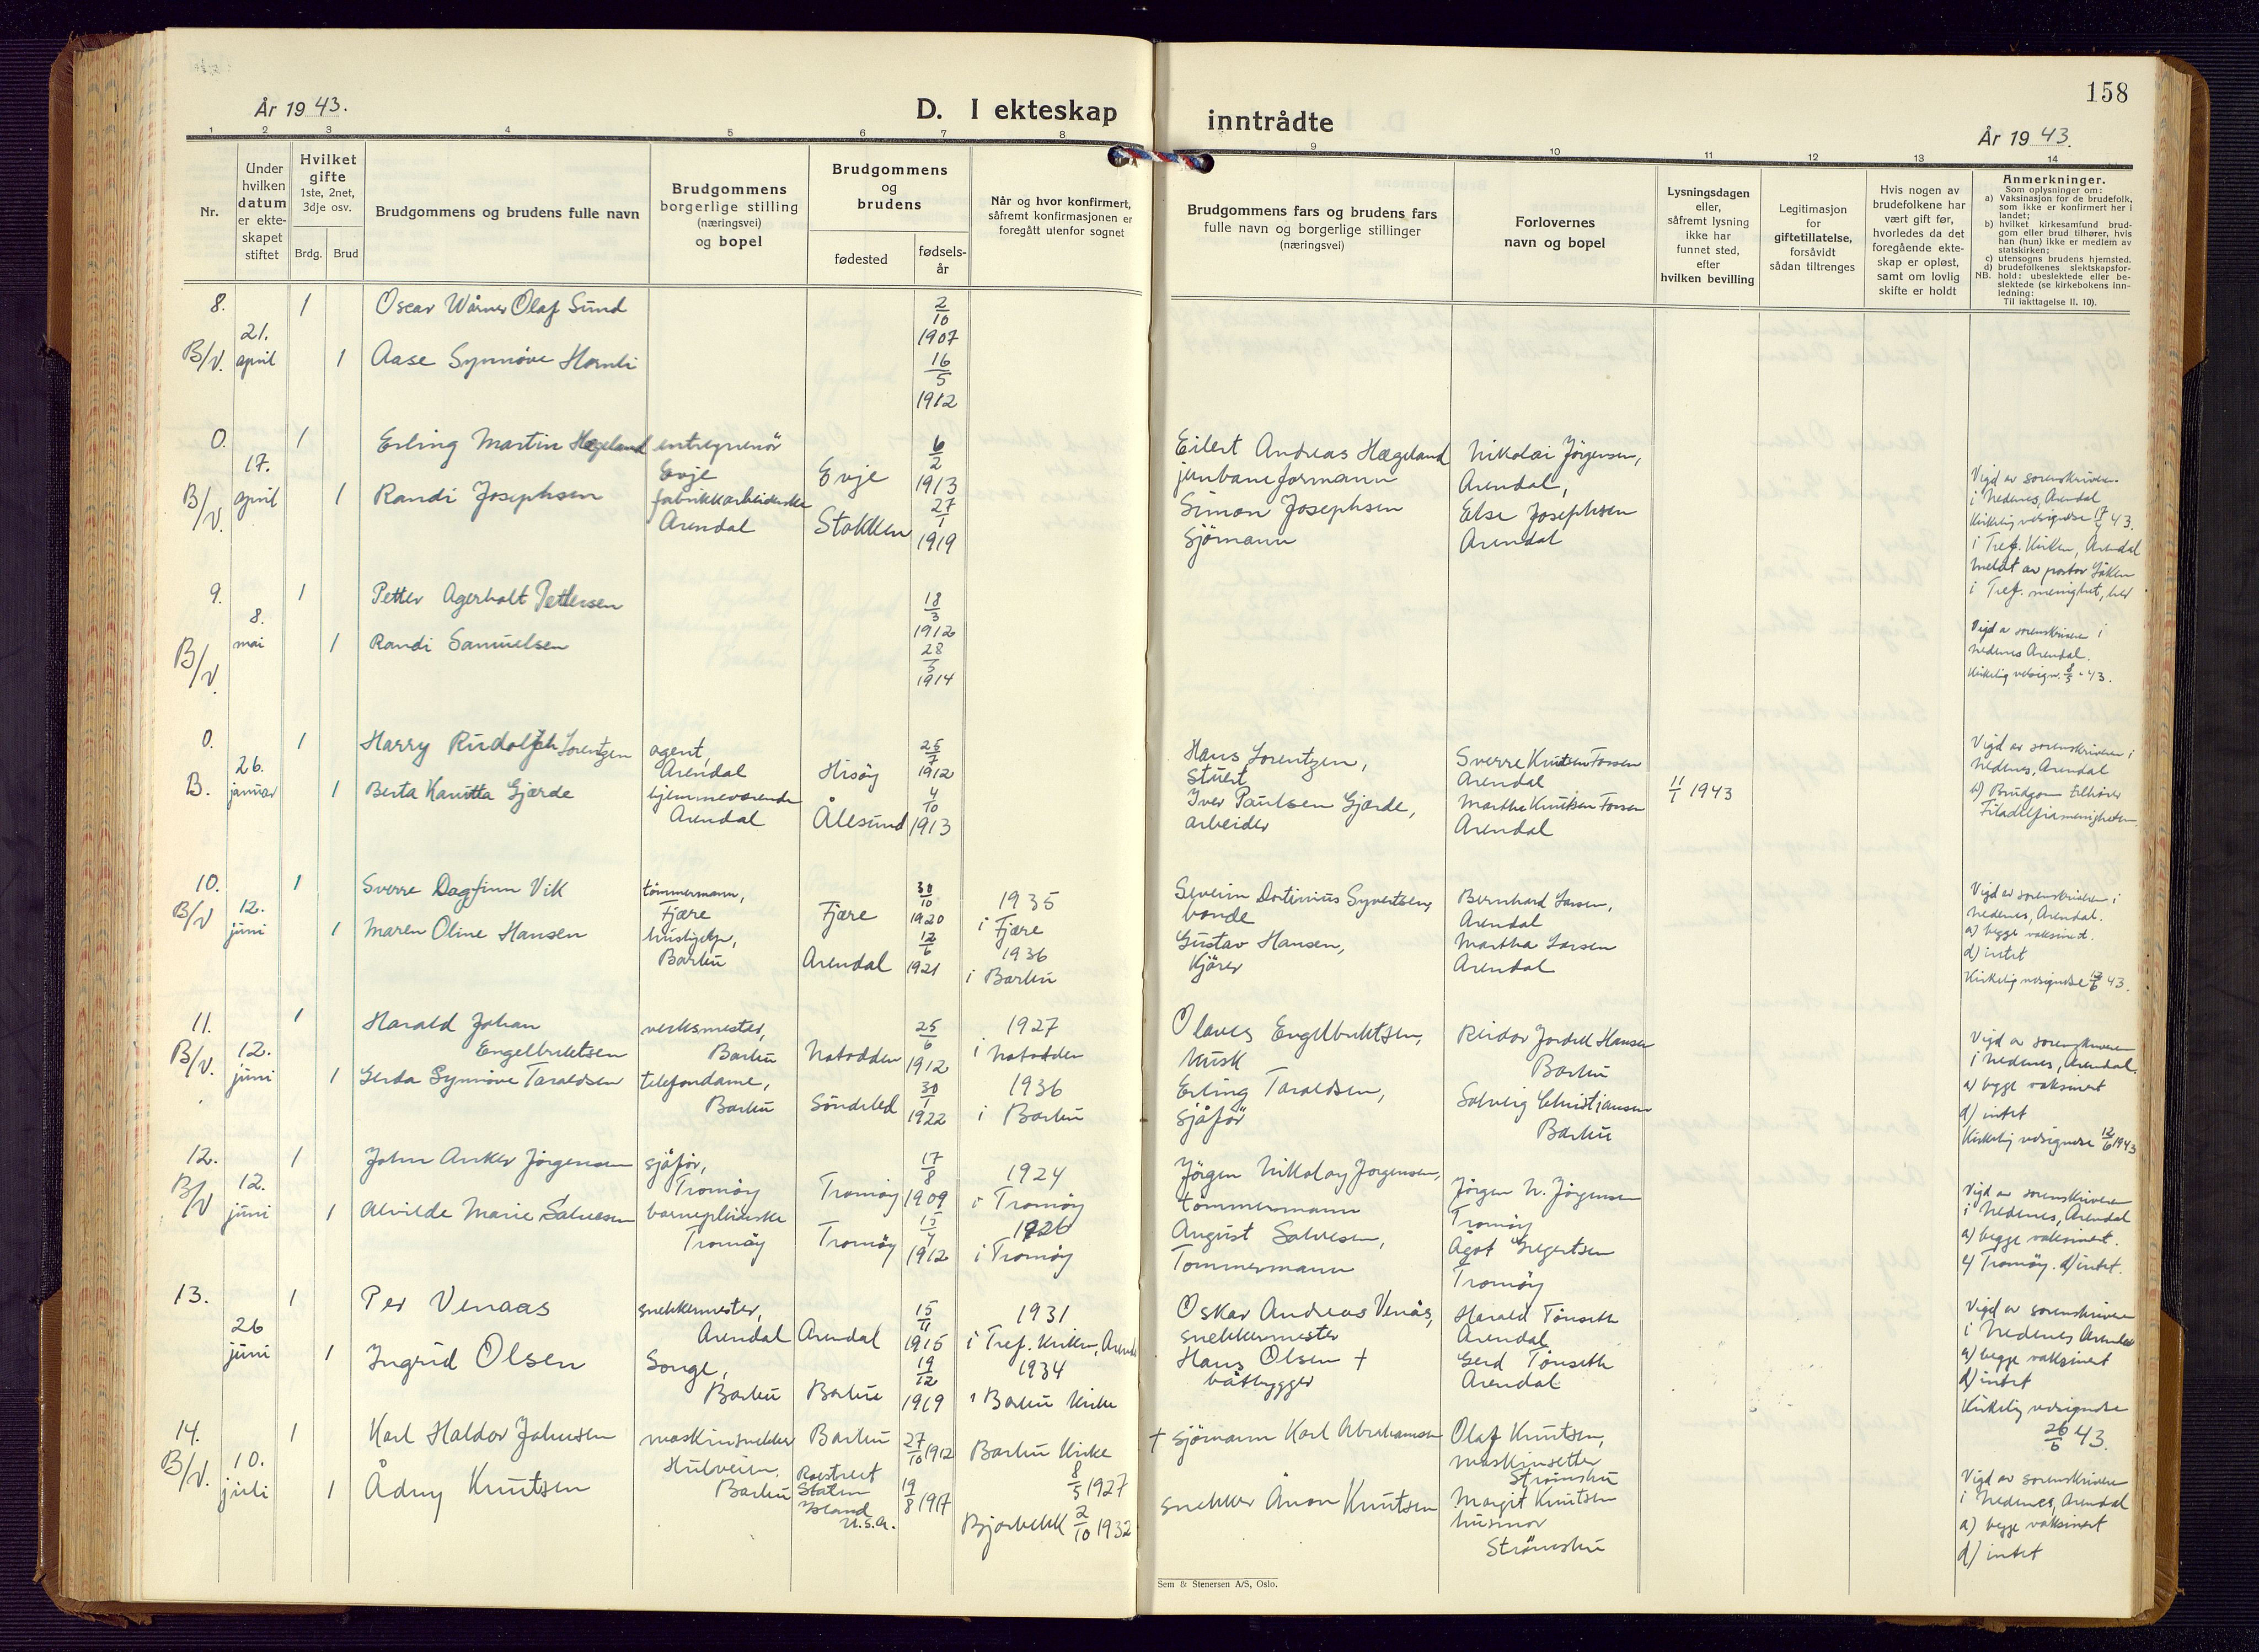 158
År 1943.
D. I ekteskap inntrådte
År 1943.
1 2 3 4 5 6 7 8 9 10 11 12 13 14
Nr.
Under hvilken datum er ekte-skapet stiftet
Hvilket gifte
1ste, 2net, 3dje osv.
Brdg. Brud
Brudgommens og brudens fulle navn
Brudgommens borgerlige stilling (næringsvei) og bopel
Brudgommens og brudens
fødested
fødsels-år
Når og hvor konfirmert, såfremt konfirmasjonen er foregått utenfor sognet
Brudgommens fars og brudens fars fulle navn og borgerlige stillinger (næringsvei)
Forlovernes navn og bopel
Lysningsdagen eller, såfremt lysning ikke har funnet sted, efter hvilken bevilling
Legitimasjon for giftetillatelse, forsåvidt sådan tiltrenges
Hvis nogen av brudefolkene har vært gift før, hvorledes da det foregående ekte-skap er opløst, samt om lovlig skifte er holdt
Anmerkninger.
Som oplysninger om:
a) Vaksinasjon for de brudefolk, som ikke er konfirmert her i landet;
b) hvilket kirkesamfund brud-gom eller brud tilhører, hvis han (hun) ikke er medlem av statskirken;
c) utensogns brudens hjemsted.
d) brudefolkenes slektskapsfor-hold: ubeslektede eller be-slektede (se kirkebokens inn-ledning:
NB. Til iakttagelse II. 10).
8. 1 Oscar Wårner Olaf Sund 2/10 1907
B/V. 21. april 1 Aase Synnøve Hornli 16/5 1912
0. 1 Erling Martin Hægeland entreprenör Evje Evje 6/2 1913
Eilert Andreas Hægeland jernbaneformann
Nikolai Jörgensen, Arendal,
B/V. 17. april 1 Randi Josephsen fabrikkarbeiderske Arendal Stokken 27/1 1919
Simon Josephsen Sjömann
Else Josephsen Arendal
Vigd av sorenskriveren
i Nedenes, Arendal
Kirkelig velsignelse 17/4 43.
i Tref. Kirken, Arendal
Meldt av pastor
i Tref. menighet, her
9. 1 Petter Agerholt Pettersen 18/3 1912
B/V. 8. mai 1 Randi Samuelsen 28/5 1914
Vigd av sorenskriveren i
Nedenes Arendal.
Kirkelig velsign. 8/5 - 43.
0. 1 Harry Rudolph Lorentzen agent, Arendal Hisöy 25/7 1912
Hans Lorentzen, Stuert
Sverre Knutsen Fossen Arendal
B. 26. januar 1 Berta Kanutta Gjærde hjemmeværende Arendal Ålesund 4/10 1913
Iver Paulsen Gjærde, arbeider
Marthe Knutsen Fossen Arendal
11/1 1943
Vigd av sorenskriveren i
Nedenes, Arendal
b) Brudgom tilhører
Filadelfiamenigheten
10. 1 Sverre Dagfinn Vik tömmermann, Fjære Fjære 30/10 1920 1935 i Fjære
Severin Dortinius Syvertsen, bonde
Bernhard Larsen, Arendal
B/V 12. juni 1 Maren Oline Hansen hushjelp, Barbu Arendal 12/6 1921 1936 i Barbu
Gustav Hansen, Kjörer
Martha Larsen Arendal
Vigd av sorenskriveren i
Nedenes, Arendal.
a) begge vaksinert.
d) intet
Kirkelig velsignelse 12/6 43.
11. 1 Harald Johan Engelbrektsen verksmester, Barbu Notodden 25/6 1912 1927 i Notodden
Olaves Engelbrektsen, Murer
Reidar Jordell Hansen Barbu
B/V. 12. juni 1 Gerda Synnöve Taraldsen telefondame, Barbu Söndeled 30/1 1922 1936 i Barbu
Erling Taraldsen, Sjåför
Solveig Christiansen Barbu
Vigd av sorenskriveren
i Nedenes, Arendal.
a) begge vaksinert
d) intet
Kirkelig velsignelse 12/6 1943
12. 1 John Anker Jörgensen sjåför, Tromöy Tromöy 17/8 1909 1924 i Tromöy
Jörgen Nikolay Jörgensen, tömmermann
Jörgen N. Jörgensen Tromöy
B/V 12. juni 1 Alvilde Marie Salvesen barnepleierske Tromöy Tromöy 15/4 1912 1926 i Tromöy
August Salvesen, Tömmermann
Ågot Gregertsen Tromöy
Vigd av sorenskriveren
i Nedenes, Arendal
a) begge vaksinert.
c) Tromöy. d) intet.
13. 1 Per Venaas snekkermester, Arendal Arendal 15/11 1915 1931 i Tref. Kirken, Arendal
Oskar Andreas Venås, snekkermester
Harald Tönseth Arendal
26 juni 1 Ingrid Olsen Songe, Barbu Barbu 19/12 1919 1934 i Barbu kirke
Hans Olsen + båtbygger
Gerd Tönseth Arendal
Vigd av sorenskriveren
i Nedenes Arendal
a) begge vaksinert
d) intet
Kirkelig velsignelse
26/6 43.
14. 1 Karl Haldor Johnsen maskinsnekker Hulveien, Barbu Barbu 27/10 1912 Barbu Kirke 8/5 1927
+ Sjömann Karl Abrahamsen
Olaf Knutsen, maskinsetter Strömsbu
B/V. 10. juli 1 Ådny Knutsen Staten Island U.S.A. 19/8 1917 Bjorbekk 2/10 1932
snekker Anon Knutsen
Margit Knutsen husmor Strömsbu
Vigd av sorenskriveren
i Nedenes, Arendal
a) begge vaksinert
d) intet
Sem & Stenersen A/S, Oslo.